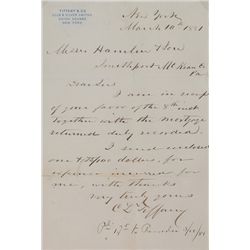 TIFFANY & CO.
GOLD & SILVER
UNION SQUARE
NEW YORK
New York
March 10th 1881
Messrs Hamlin & Son
Smethport McKean Co
Pa
Dear Sirs
I am in receipt
of your favor of the 8th inst
together with the mortgage
returned duly recorded.
I send enclosed
dollars, for
expenses incurred for
me, with thanks
Very truly yours
C L Tiffany